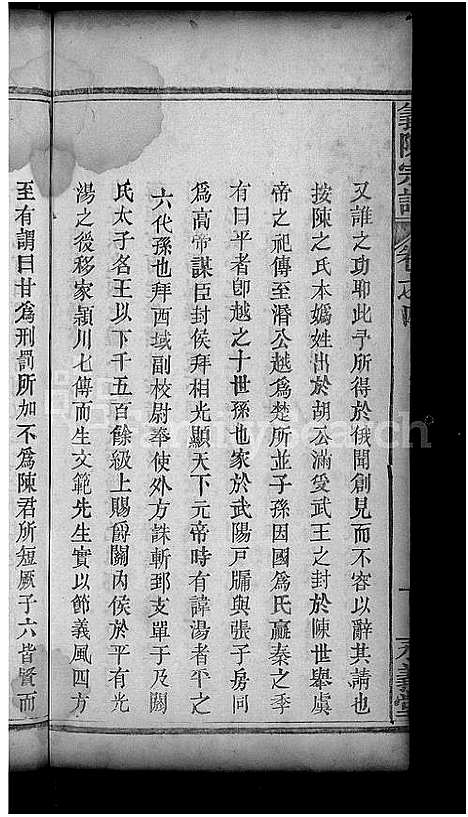 義陳宗譜
又誰之功耶此予所得於俄聞創見而不容以辭其請也
按陳之氏本媯姓出於胡公滿受武王之封於陳世舉虞
帝之祀傳至潛公越為楚所並子孫因國為氏嬴秦之季
有曰平者卽越之十世孫也家於武陽戸牖與張子房同
為高帝謀臣封侯拜相光顯天下元帝時有諱湯者平之
六代孫也拜西域副校尉奉使外方誅斬郅支單于及閼
氏太子名王以下千五百餘級上賜爵關內侯於平有光
湯之後移家潁川七傳而生文範先生實以節義風四方
至有謂曰甘為刑罰所加不為陳君所短厥子六皆賢而
FamilySearch